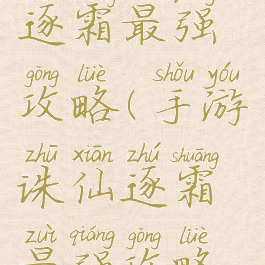 逐霜最强
gōng lüè shǒu yóu
攻略(手游
zhū xiān zhú shuāng
诛仙逐霜
zuì qiáng gōng lüè
最强攻略